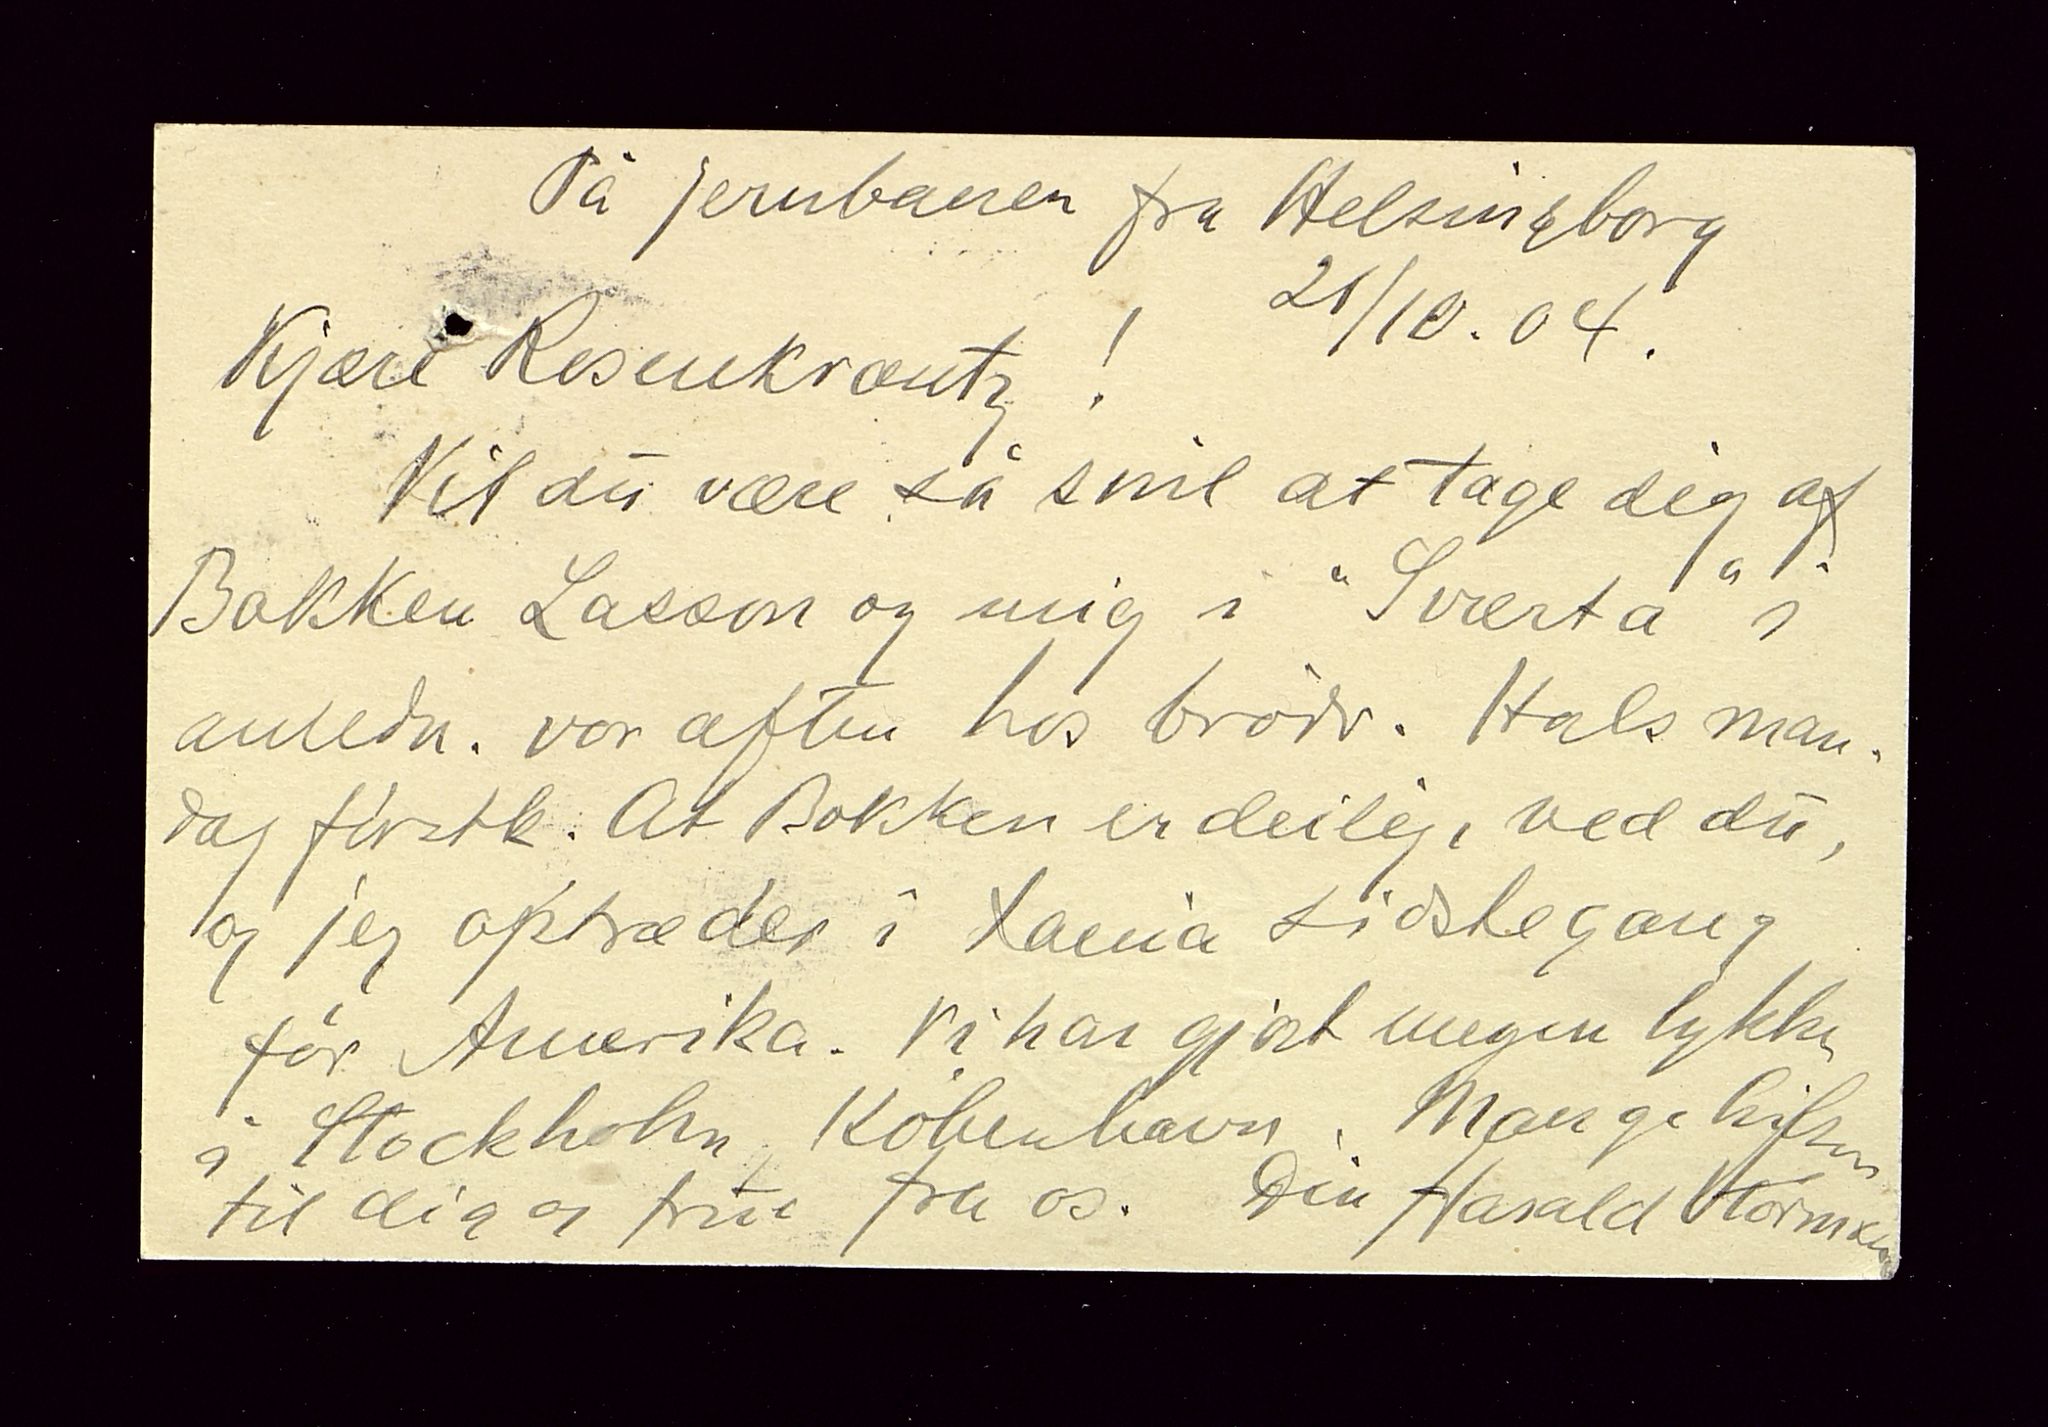 På jernbanen fra Helsingborg
21/10. 04.
Kjære Rosenkrantz!
Vil du være så snil at tage dig af
Bokken Lasson og mig i "Sværta" i
anledn. vor aften hos brödr. Hals man-
dag förstk. At Bokken er deilig, ved du,
og jeg optræder i Xania sidste gang
för Amerika. Vi har gjort megen lykke
i Stockholm, Köbenhavn. Mange hilsen
til dig og frue fra os. Din Harald Stormoen